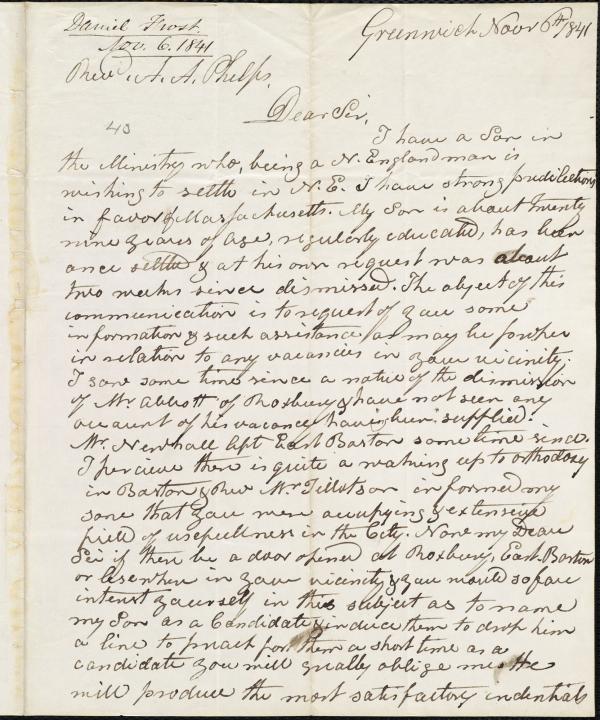 Daniel Frost.
Nov. 6. 1841
Greenwich Novr 6th 1841
Revd. A. A. Phelps.
Dear Sir,
43
I have a Son in
the Ministry who, being a N. England man is
wishing to settle in N. E. I have strong predilections
in favor of Massachusetts. My Son is about twenty
nine years of age, regularly educated, has been
once settled & at his own request was about
two weeks since dismissed. The object of this
communication is to request of you some
information & such assistance as may be further
in relation to any vacancies in your vicinity.
I saw some time since a notice of the dismission
of Mr. Abbott of Roxbury & have not seen any
account of his vacancy having been supplied.
Mr. Newhall left East Boston some time since.
I percieve there is quite a waking up to orthodoxy
in Boston & Rev Mr Tillotson informed my
sone that you were occupying & extensive
field of usefullness in the City. Now my Dear
Sir if there be a door opened at Roxbury, East Boston
or elsewhere in your vicinity & you would so far
interest yourself in this subject as to name
my Son as a Candidate & induce them to drop him
a line to preach for them a short time as a
candidate you will greatly oblige me. He
will produce the most satisfactory credentials